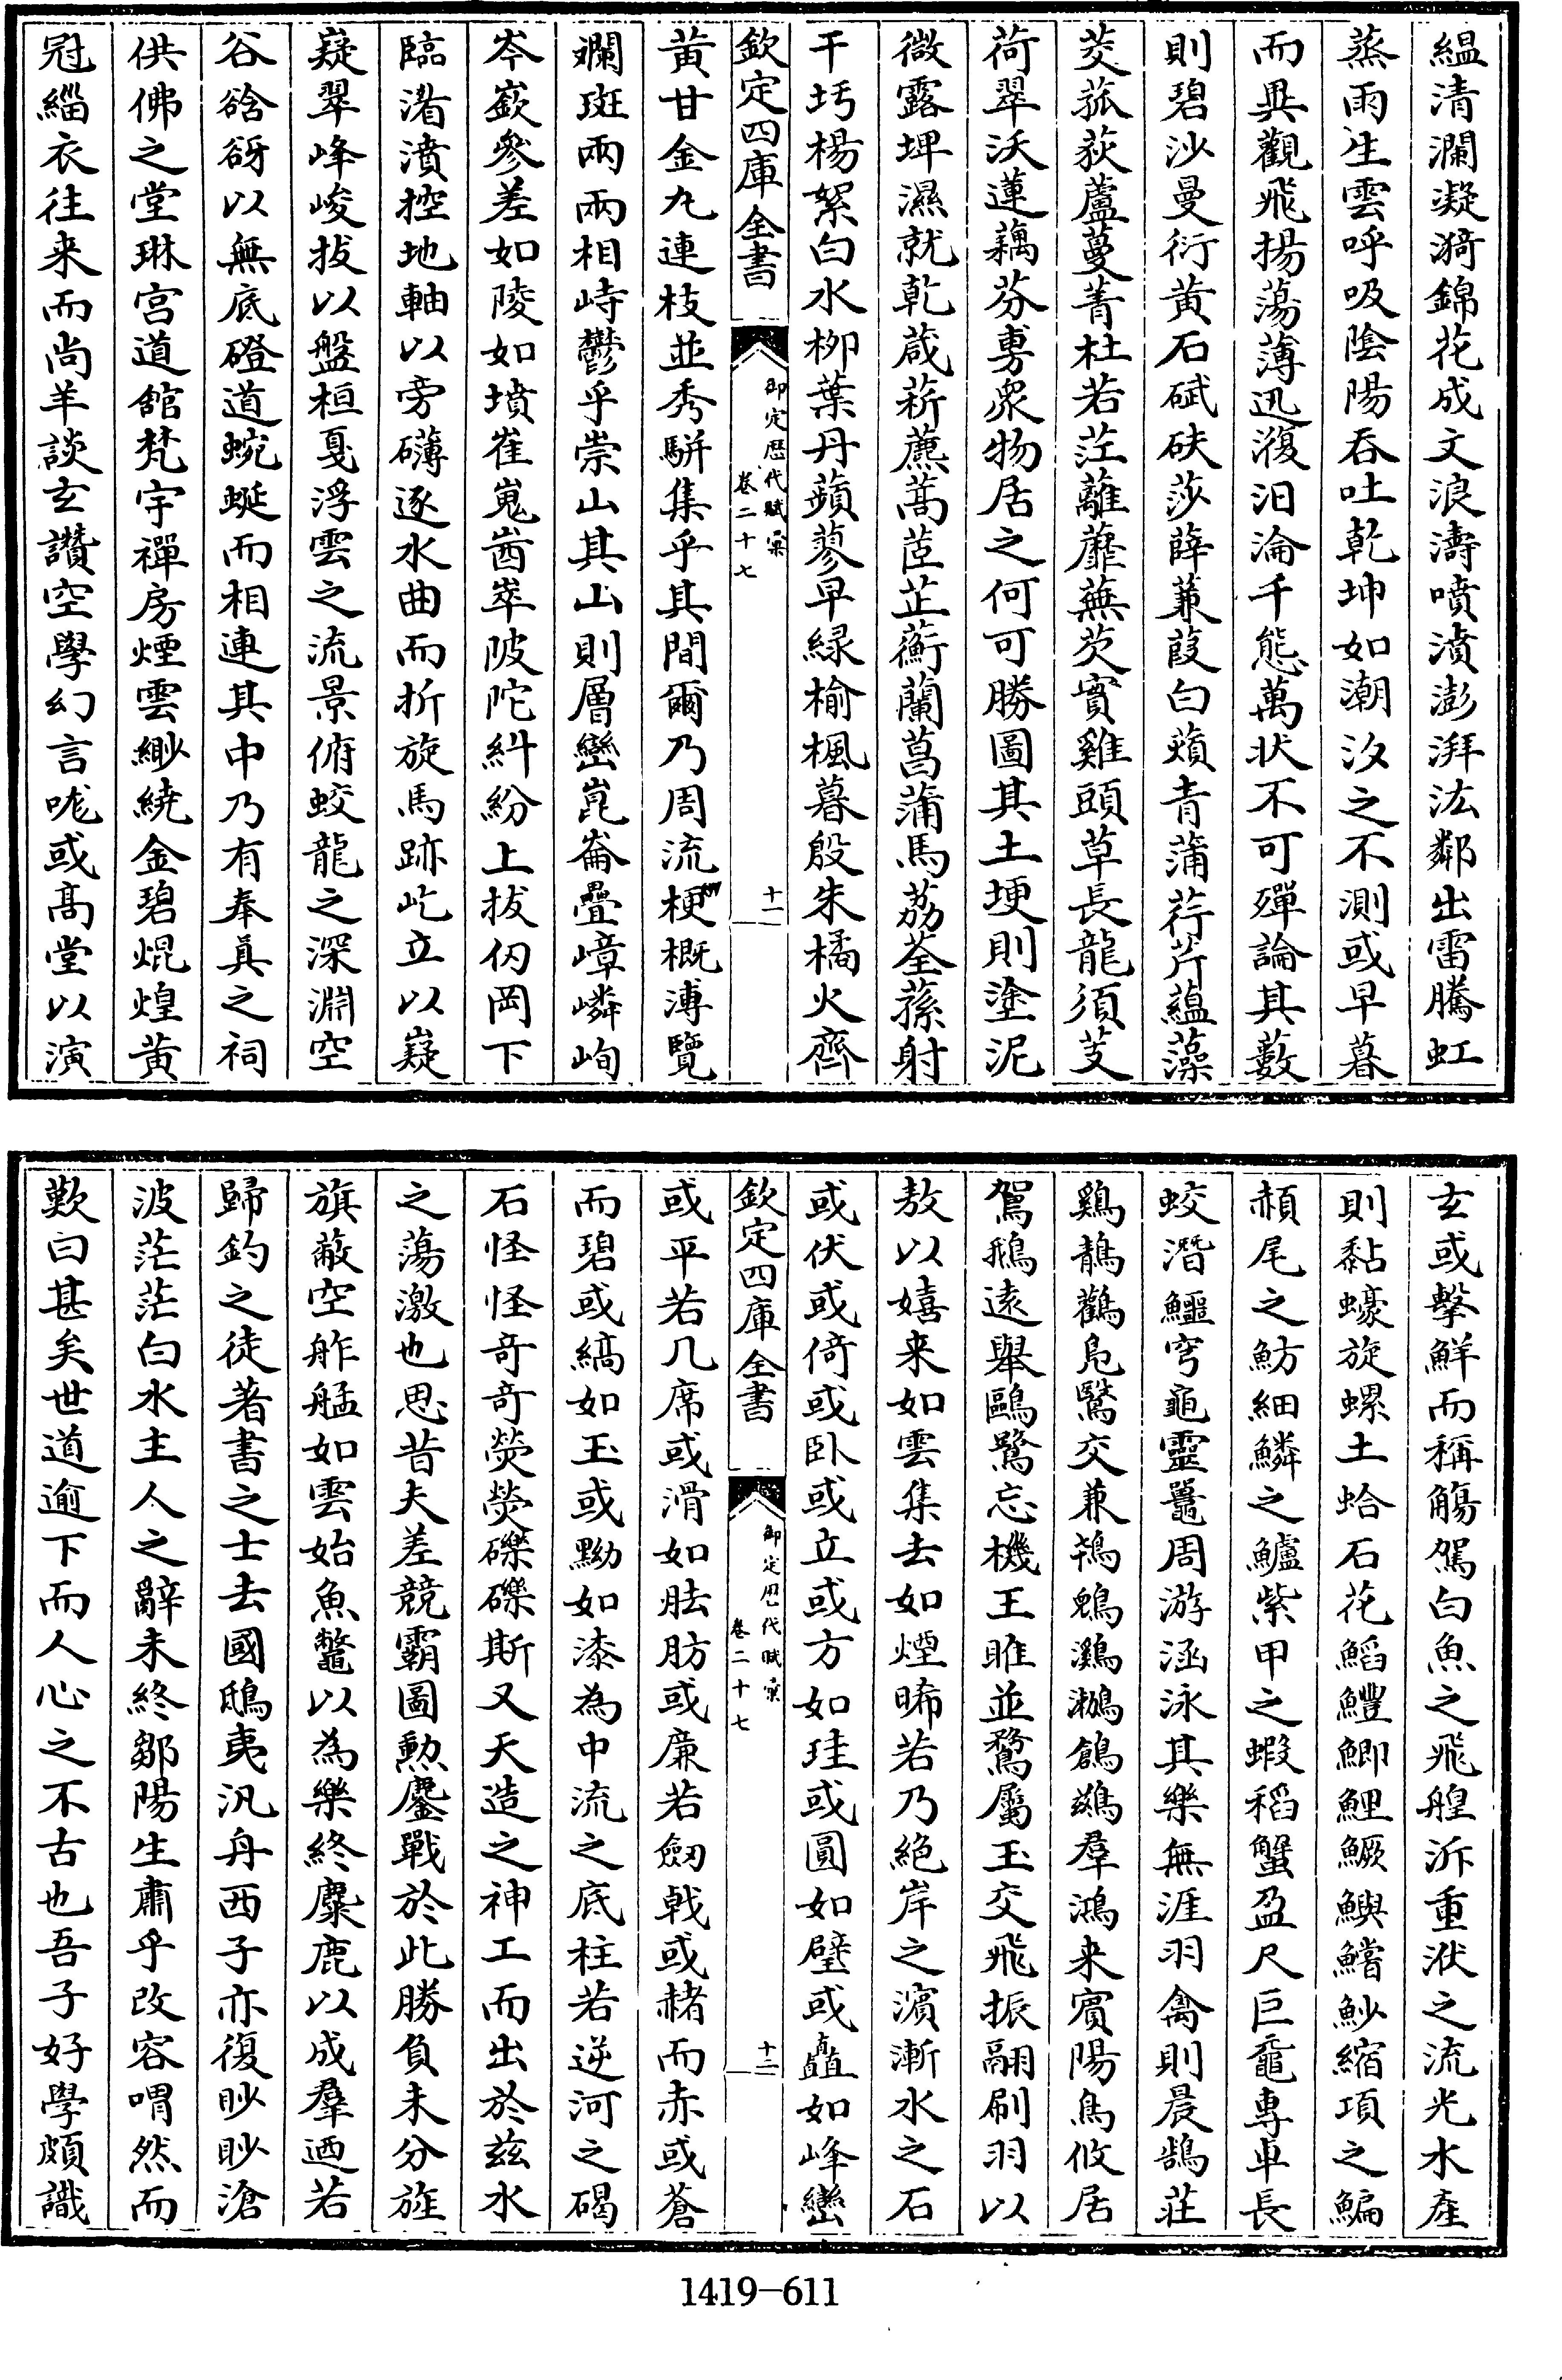 緼清瀾凝漪錦花成文浪濤噴濆澎湃汯鄰出雷騰虹
蒸雨生雲呼吸陰陽吞吐乾坤如潮汐之不測或早暮
而異觀飛揚蕩薄迅澓汨淪千態萬狀不可殫論其藪
則碧沙曼衍黄石碔砆莎薛蒹葭白薠青蒲荇芹蘊藻
茭菰荻蘆蔓菁杜若茳蘺蘼蕪芡實雞頭草長龍須芰
荷翠沃蓮藕芬旉衆物居之何可勝圖其土埂則塗泥
微露埤濕就乾葴菥藨蒿茝芷蘅蘭菖蒲馬荔荃蓀射
干圬楊絮白水柳葉丹蘋蓼早緑榆楓暮殷朱橘火齊
欽定四庫全書
御定歴代賦彙
卷二十七
十一
黄甘金丸連枝並秀駢集乎其間爾乃周流梗概溥覽
斕斑兩兩相峙鬱乎崇山其山則層巒崑崙疊嶂嶙峋
岑嶔參差如陵如墳崔嵬崷崒陂陀糾紛上拔仭岡下
臨渚濆控地軸以旁礴逐水曲而折旋馬跡屹立以嶷
嶷翠峰峻拔以盤桓戛浮雲之流景俯蛟龍之深淵空
谷谽谺以無底磴道蜿蜒而相連其中乃有奉真之祠
供佛之堂琳宫道舘梵宇禪房煙雲緲繞金碧焜煌黄
冠緇衣往来而尚羊談玄讚空學幻言哤或髙堂以演
玄或擊鮮而稱觴駕白魚之飛艎泝重洑之流光水産
則黏蠔旋螺土蛤石花鰌鱧鯽鯉鱖鱮鱨魦縮項之鯿
頳尾之魴細鱗之鱸紫甲之蝦稻蟹盈尺巨黿專車長
蛟潛鱷穹龜靈鼉周游涵泳其樂無涯羽禽則晨鵠莊
鷄鶄鸛鳧鷖交兼鴇鵾鸂鶒鶬鷀羣鴻来賓陽鳥攸居
駕鵝遠舉鷗鷺忘機王雎並鶩屬玉交飛振翮刷羽以
敖以嬉来如雲集去如煙晞若乃絶岸之濱漸水之石
或伏或倚或卧或立或方如珪或圓如璧或矗如峰巒
欽定四庫全書
御定歴代賦彙
卷二十七
十二
或平若几席或滑如肤肪或廉若劒戟或赭而赤或蒼
而碧或縞如玉或黝如漆為中流之底柱若逆河之碣
石怪怪竒竒熒熒礫礫斯又天造之神工而出於兹水
之蕩激也思昔夫差競霸圖勲鏖戰於此勝負未分旌
旗蔽空舴艋如雲始魚鼈以為樂終麋鹿以成羣迺若
歸釣之徒著書之士去國鴟夷汎舟西子亦復眇眇滄
波茫茫白水主人之辭未終鄒陽生肅乎改容喟然而
歎曰甚矣世道逾下而人心之不古也吾子好學頗識
1419-611